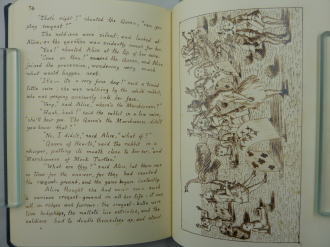 76
"That's right!" shouted the Queen, "can you play croquet?"
The soldiers were silent, and looked at Alice, as the question was evidently meant for her.
"Yes!" shouted Alice at the top of her voice.
"Come on then!" roared the Queen, and Alice joined the procession, wondering very much what would happen next.
"It's—it's a very fine day!" said a timid little voice: she was walking by the white rabbit, who was peeping anxiously into her face.
"Very," said Alice, "where's the Marchioness?"
"Hush, hush!" said the rabbit in a low voice, "she'll hear you. The Queen's the Marchioness: didn't you know that?"
"No, I didn't," said Alice, "what of?"
"Queen of Hearts," said the rabbit in a whisper, putting its mouth close to her ear, "and Marchioness of Mock Turtles."
"What are they?" said Alice, but there was no time for the answer, for they had reached the croquet-ground, and the game began instantly.
Alice thought she had never seen such a curious croquet-ground in all her life: it was all in ridges and furrows: the croquet-balls were live hedgehogs, the mallets live ostriches, and the soldiers had to double themselves up, and stand